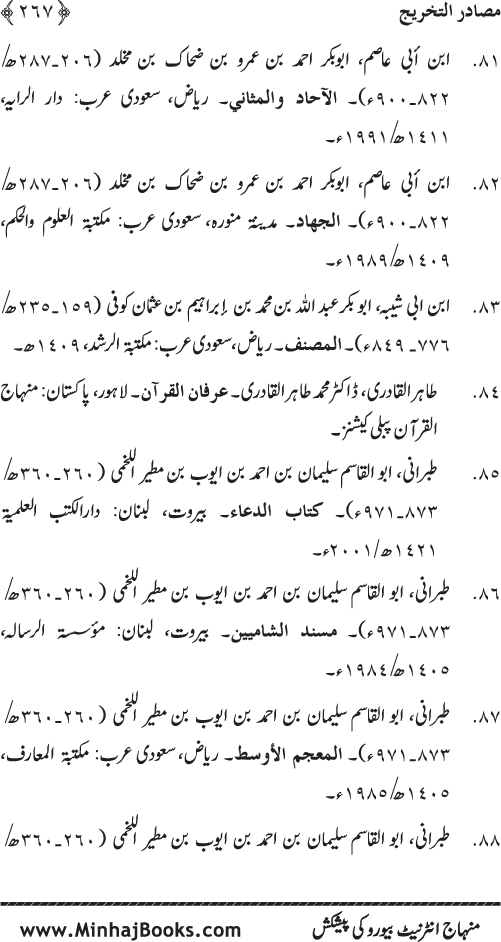 مصادر التخریج ﴿٢٦٧﴾
٨١۔ ابن أبی عاصم، ابوبکر احمد بن عمرو بن ضحاک بن مخلد (٢٠٦۔٢٨٧ھ/
٨٢٢۔٩٠٠ء)۔ الآحاد والمثاني۔ ریاض، سعودی عرب: دار الرایہ،
١٤١١ھ/١٩٩١ء۔
٨٢۔ ابن أبی عاصم، ابوبکر احمد بن عمرو بن ضحاک بن مخلد (٢٠٦۔٢٨٧ھ/
٨٢٢۔٩٠٠ء)۔ الجهاد۔ مدینۃ منورہ، سعودی عرب: مکتبۃ العلوم والحکم،
١٤٠٩ھ/١٩٨٩ء۔
٨٣۔ ابن ابی شیبہ، ابو بکر عبد اللہ بن محمد بن إبراہیم بن عثمان کوفی (١٥٩۔٢٣٥ھ/
٧٧٦۔ ٨٤٩ء)۔ المصنف۔ ریاض، سعودی عرب: مکتبۃ الرشد، ١٤٠٩ھ۔
٨٤۔ طاہر القادری، ڈاکٹر محمد طاہر القادری۔ عرفان القرآن۔ لاہور، پاکستان: منہاج
القرآن پبلی کیشنز۔
٨٥۔ طبرانی، ابو القاسم سلیمان بن احمد بن ایوب بن مطیر اللخمی (٢٦٠۔٣٦٠ھ/
٨٧٣۔٩٧١ء)۔ کتاب الدعاء۔ بیروت، لبنان: دارالکتب العلمیۃ
١٤٢١ھ/٢٠٠١ء۔
٨٦۔ طبرانی، ابو القاسم سلیمان بن احمد بن ایوب بن مطیر اللخمی (٢٦٠۔٣٦٠ھ/
٨٧٣۔٩٧١ء)۔ مسند الشامیین۔ بیروت، لبنان: مؤسسۃ الرسالہ،
١٤٠٥ھ/١٩٨٤ء۔
٨٧۔ طبرانی، ابو القاسم سلیمان بن احمد بن ایوب بن مطیر اللخمی (٢٦٠۔٣٦٠ھ/
٨٧٣۔٩٧١ء)۔ المعجم الأوسط۔ ریاض، سعودی عرب: مکتبۃ المعارف،
١٤٠٥ھ/١٩٨٥ء۔
٨٨۔ طبرانی، ابو القاسم سلیمان بن احمد بن ایوب بن مطیر اللخمی (٢٦٠۔٣٦٠ھ/
منہاج انٹرنیٹ بیورو کی پیشکش www.MinhajBooks.com